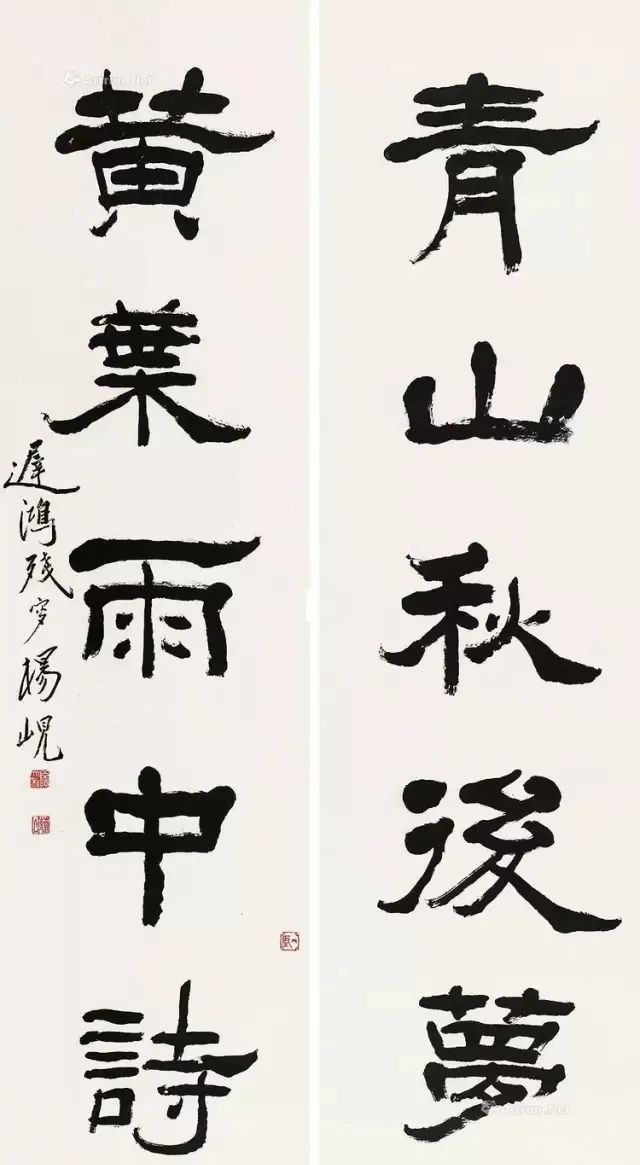 青山秋後夢
黃葉雨中詩
遲鴻殘叟楊峴
Artron.Net
Artron.Net